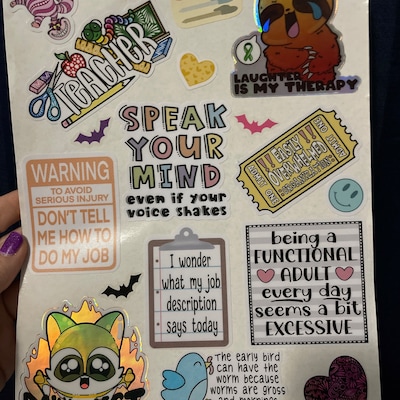 TEACHER
LAUGHTER
IS MY THERAPY
SPEAK
YOUR
MIND
even if your
voice shakes
EASILY
OVERWHELMED
WARNING
TO AVOID
SERIOUS INJURY
DON'T TELL
ME HOW TO
DO MY JOB
I wonder
what my job
description
says today
being a
FUNCTIONAL
ADULT
every day
seems a bit
EXCESSIVE
The early bird
can have the
worm because
worms are gross
and mornings